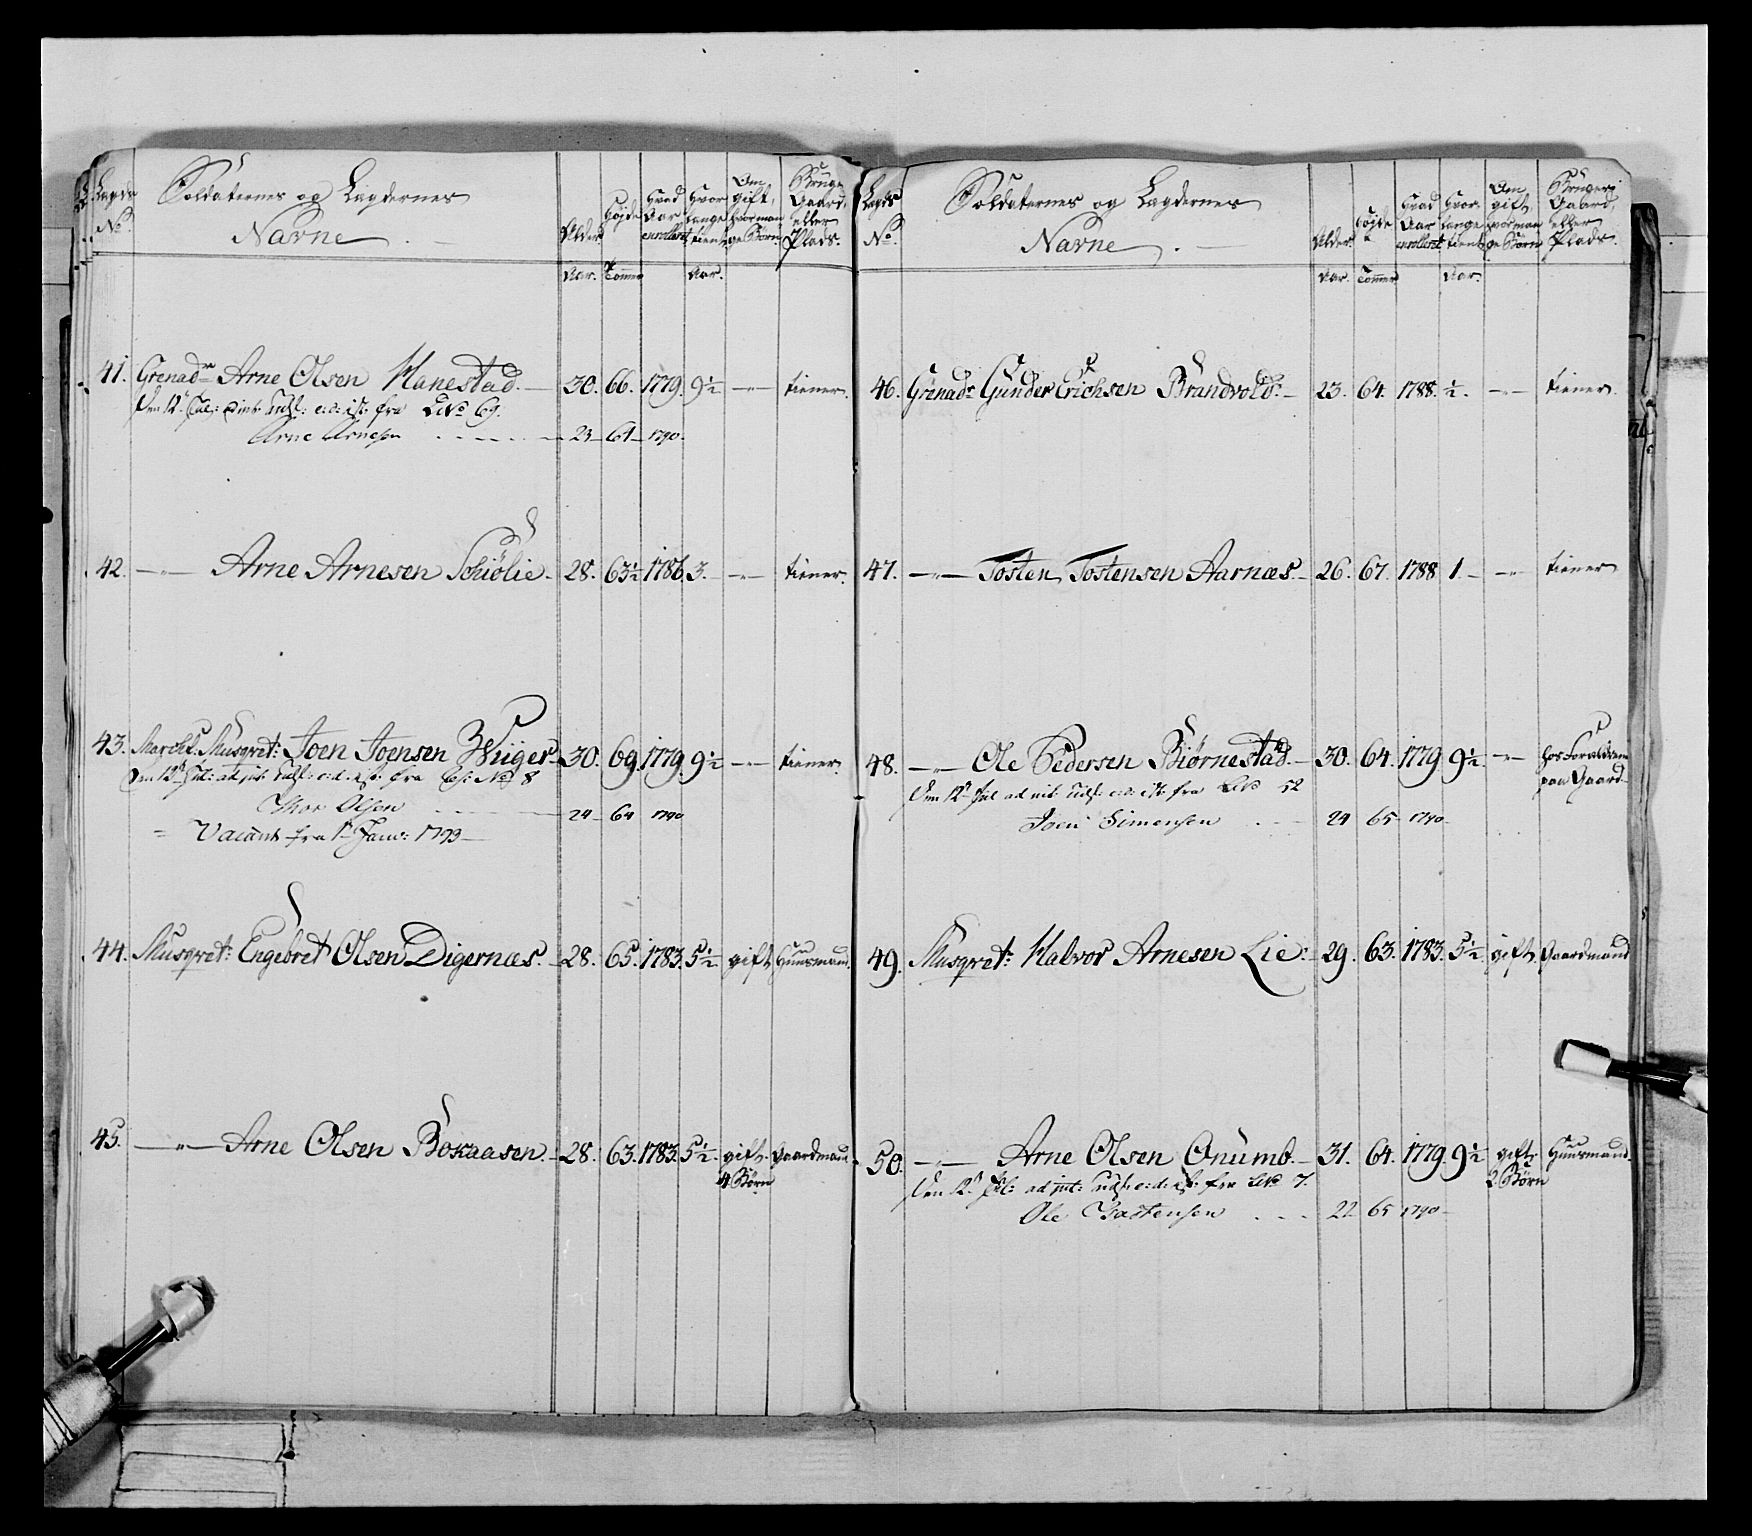 Lægds No. Soldaternes og Lægdernes Navne Alder Højde Hvad Aar enrollert Hvor længe tient Om gift, hvor mange Børn Bruger Gaard, eller Plads.
Aar. Tommer Aar.
41. Grenadr Arne Olsen Hanestad. 30. 66. 1779. 9½ —"— tiener.
Den 12t Jul: fra LNo 69.
Arne Arnesen 23 64 1790.
42. —"— Arne Arnesen Schiølie 28. 63½ 1786. 3. —"— tiener.
43. Musqret: Joen Joensen Wiiger 30. 69. 1779. 9½ —"— tiener.
Den 12t Jul: fra No 8
Thor Olsen 24 64 1790
= Vacant fra 1t Janv: 1793
44. Musqret: Engebret Olsen Digernæs. 28. 65. 1783. 5½ gift Huusmand.
45. —"— Arne Olsen Bokaasen. 28. 63. 1783. 5½. gift. Gaardmand.
4 Børn
Lægds No. Soldaternes og Lægdernes Navne Alder Højde Hvad Aar enrollert Hvor længe tient Om gift hvor mange Børn Bruger Gaard, eller Plads.
Aar. Tommer Aar.
46. Grenadr Gunder Erichsen Brandvold. 23. 64. 1788. ½. —"— tiener.
47. —"— Tosten Tostensen Aarnæs. 26. 67. 1788 1. —"— tiener
48. —"— Ole Pedersen Biørnestad. 30. 64. 1779 9½. —"— hos Forældrene paa Gaard
Den 12t Jul fra LNo 52
Joen Simensen 24 65 1790
49. Musqret: Halvor Arnesen Lie. 29. 63. 1783. 5½. gift. Gaardmand
50. —"— Arne Olsen Onumb. 31. 64. 1779. 9½ gift Huusmand.
2 Børn
Den 12t Jul: fra LNo 7.
Ole 22 65 1790